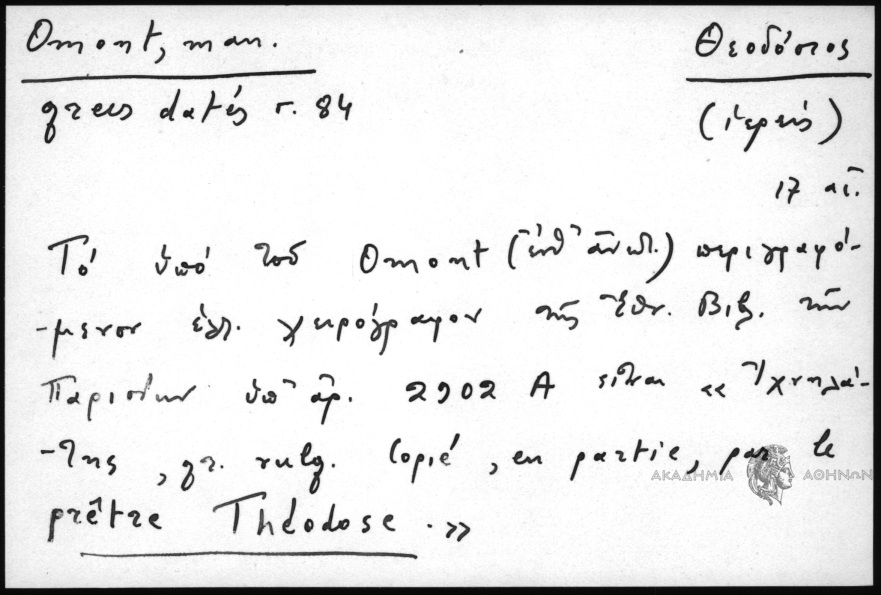 Omont, man.
grecs datés σ. 84
Θεοδόσιος
(ἱερεύς)
17 αἰ.
Τό ὑπό τοῦ Omont (ἔνθ' ἀνωτ.) περιγραφό-
-μενον ἑλλ. χειρόγραφον τῆς Ἐθν. Βιβ. τῶν
Παρισίων ὑπ' ἀρ. 2902 A εἶναι « Ἰχνηλά-
-της, gr. vulg. Copié, en partie, par le
prêtre Théodose. »
ΑΚΑΔΗΜΙΑ ΑΘΗΝΩΝ